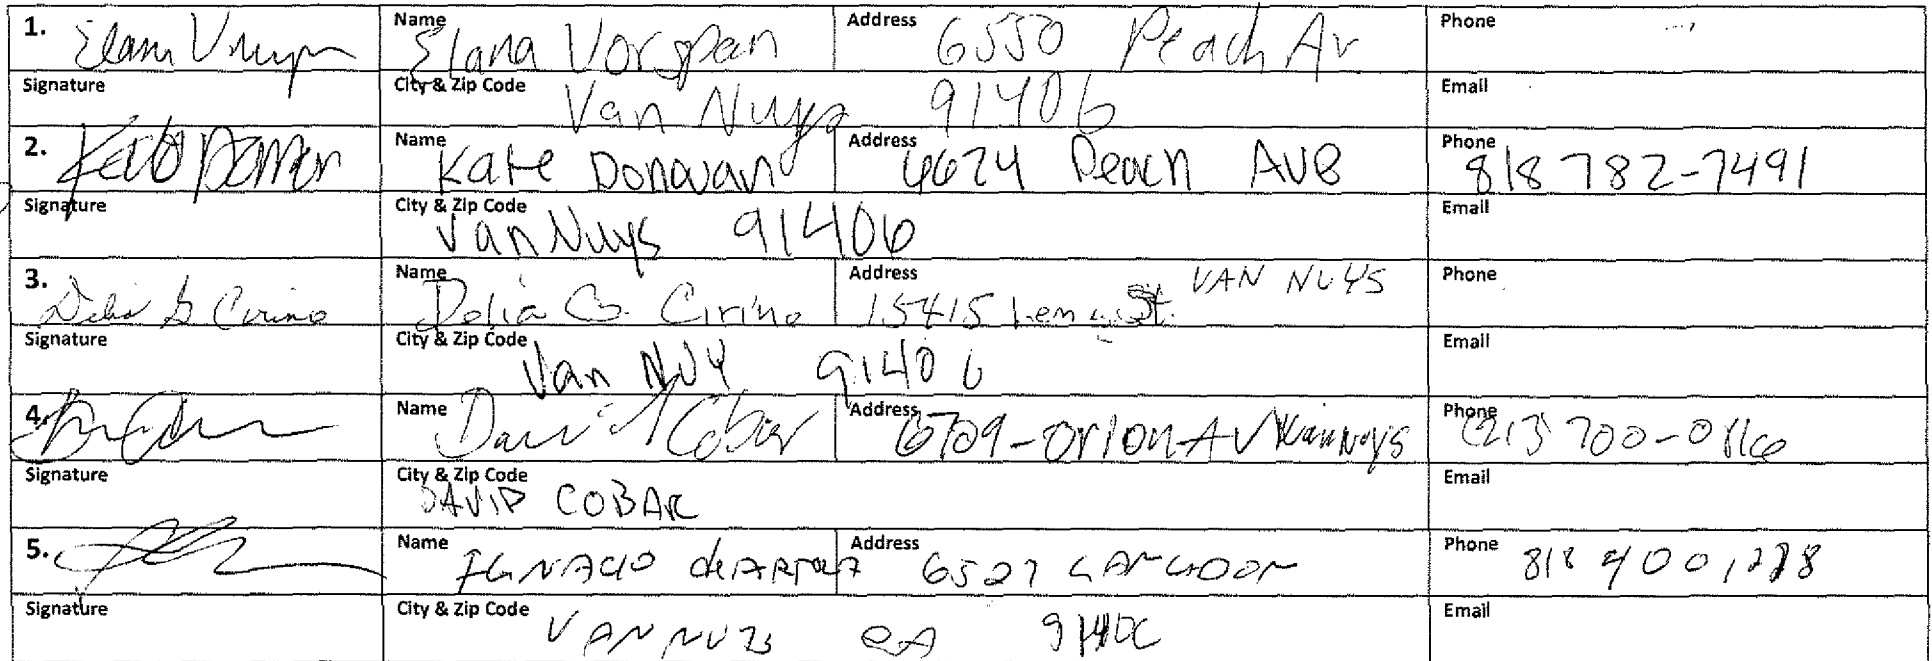 1. Name Elana Vorspan Address 6550 Peach Av Phone
Signature City & Zip Code Van Nuys 91406 Email
2. Name Kate Donovan Address 6624 Peach Ave Phone 818 782-7491
Signature City & Zip Code Van Nuys 91406 Email
3. Delia G Cirino Name Delia G. Cirino Address 15415 St. VAN NUYS Phone
Signature City & Zip Code Van NUY 91406 Email
4. Name David Cobar Address 6709-Orion Av Van Nuys Phone (213) 700-0816
Signature City & Zip Code DAVID COBAR Email
5. Name IGNACIO Address 6527 LANGDON Phone 818
Signature City & Zip Code VAN NUYS CA 91406 Email